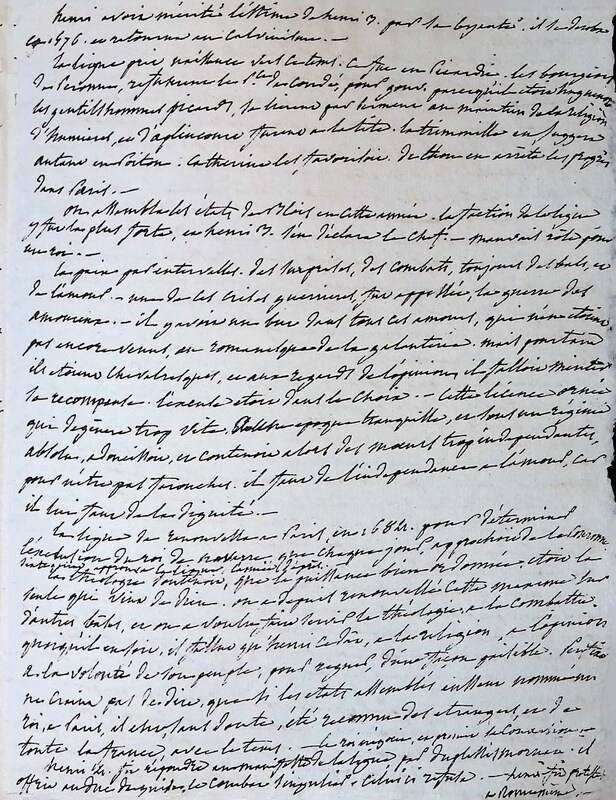 henri avoit mérité l'estime de henri 3. par sa loyauté. il se déroba
en 1576. et retourna au calvinisme. —
la ligue prit naissance vers ce tems. ce fut en Picardie. les bourgeois
de Peronne, refuserent le Pce de condé, pour gouv. parcequ'il étoit huguenot
les gentilshommes picards, se lierent par serment au maintien de la religion
d'Humieres, et d'aplincourt furent a la tête. la trimouille en suggera
autant en Poitou. Catherine les favorisoit. de thou en arrêta les progrès
dans Paris. —
on assembla les états de Blois en cette année. la faction de la ligue
y fut la plus forte, et henri 3. s'en déclara le chef. — mauvais rôle pour
un roi. —
la paix par intervalles. des surprises, des combats, toujours des bals, et
de l'amour. — une de ces crises guerrieres, fut appellée, la guerre des
amoureux. — il y avoit un but dans tous ces amours, qui n'en étoient
pas encore venus, au romanesque de la galanterie. mais pourtant
ils étoient chevaleresques, et aux regards de l'opinion, il falloit mériter
sa recompense. l'excuse étoit dans le choix. — cette licence ornée
qui dégénere trop vîte. epoque tranquille, et sous un regime
absolu, adoucissoit, et contenoit alors des mœurs trop indépendantes,
pour n'être pas farouches. il faut de l'indépendance a l'amour, car
il lui faut de la dignité. —
la ligue se renouvella a Paris, en 1584. pour déterminer
l'exclusion du roi de navarre, que chaque jour approchoit de la couronne
les théologiens soutenoient, que la puissance bien ordonnée étoit la
seule qui vint de dieu. on a depuis renouvellé cette maxime sur
d'autres bases, et on a voulu faire servir la théologie, a la combattre.
quoiqu'il en soit, il fallut qu'henri cedât, a la religion, a l'opinion
a la volonté de son peuple, pour regner, d'une façon paisible.
ne craint pas de dire, que si les états assemblés eussent nommé un
roi, a Paris, il eut sans doute, été reconnu des etrangers, et de
toute la france avec le tems.
henri 4. fit répondre au manifeste de la ligue par duplessis mornai. il
offrit au duc de guise, le combat singulier. celui ci refusa. —